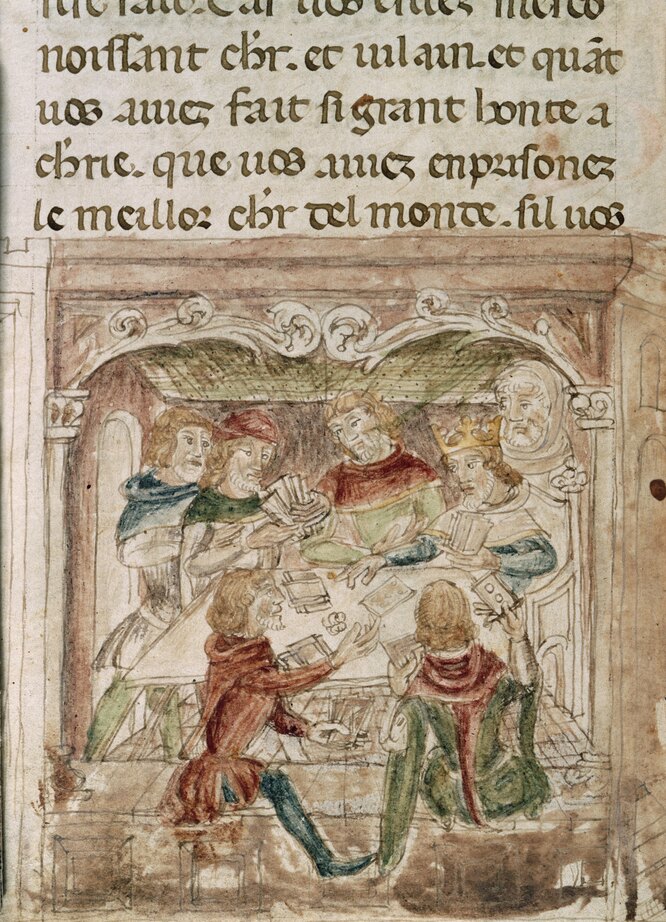 noissant chr. et uilain. et quãt
uos auiez fait si grant bonte a
chrie. que uos auiez enprisonez
le meillor chr del monde. sil uos